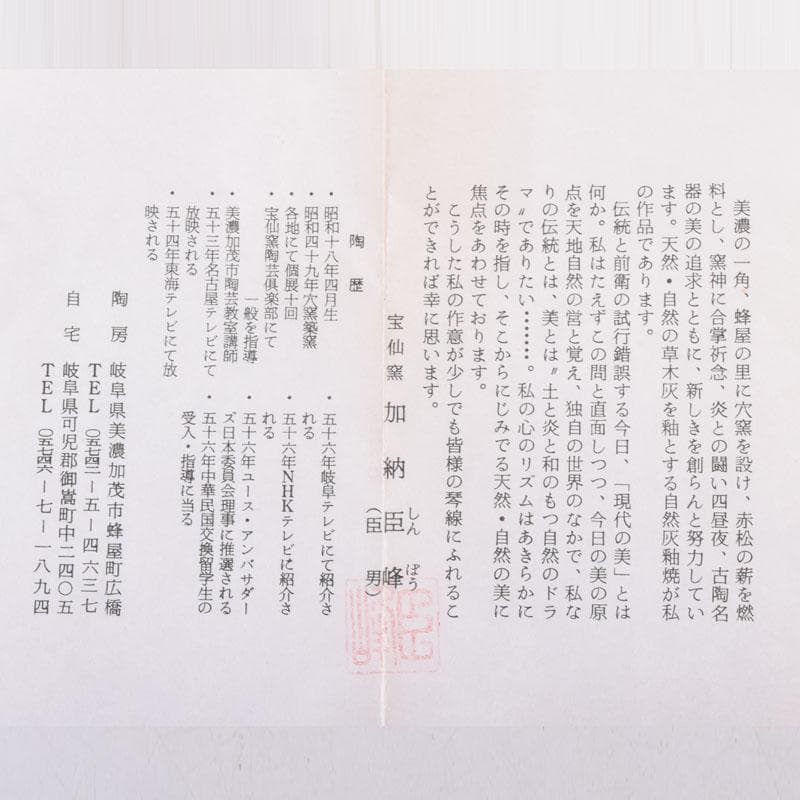 美濃の一角、蜂屋の里に穴窯を設け、赤松の薪を燃
料とし、窯神に合掌祈念、炎との闘い四昼夜、古陶名
器の美の追求とともに、新しきを創らんと努力してい
ます。天然・自然の草木灰を釉とする自然灰釉焼が私
の作品であります。
伝統と前衛の試行錯誤する今日、「現代の美」とは
何か。私はたえずこの問と直面しつつ、今日の美の原
点を天地自然の営と覚え、独自の世界のなかで、私な
りの伝統とは、美とは〃土と炎と和のもつ自然のドラ
マ〃でありたい………。私の心のリズムはあきらかに
その時を指し、そこからにじみでる天然・自然の美に
焦点をあわせております。
こうした私の作意が少しでも皆様の琴線にふれるこ
とができれば幸に思います。
宝仙窯 加納臣峰
しんぽう
(臣男)
陶歴
・昭和十八年四月生
・昭和四十九年穴窯築窯
・各地にて個展十回
・宝仙窯陶芸倶楽部にて
一般を指導
・美濃加茂市陶芸教室講師
・五十三年名古屋テレビにて
放映される
・五十四年東海テレビにて放
映される
・五十六年岐阜テレビにて紹介さ
れる
・五十六年NHKテレビに紹介さ
れる
・五十六年ユース・アンバサダー
ズ日本委員会理事に推選される
・五十六年中華民国交換留学生の
受入・指導に当る
陶房 岐阜県美濃加茂市蜂屋町広橋
TEL 〇五七四二-五-四六三七
自宅 岐阜県可児郡御嵩町中二四〇五
TEL 〇五七四六-七-一八九四